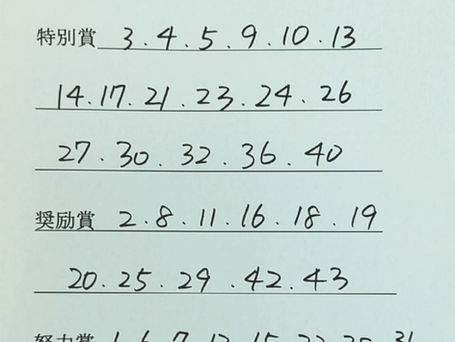 特別賞 3.4.5.9.10.13
14.17.21.23.24.26
27.30.32.36.40
奨励賞 2.8.11.16.18.19
20.25.29.42.43
努力賞